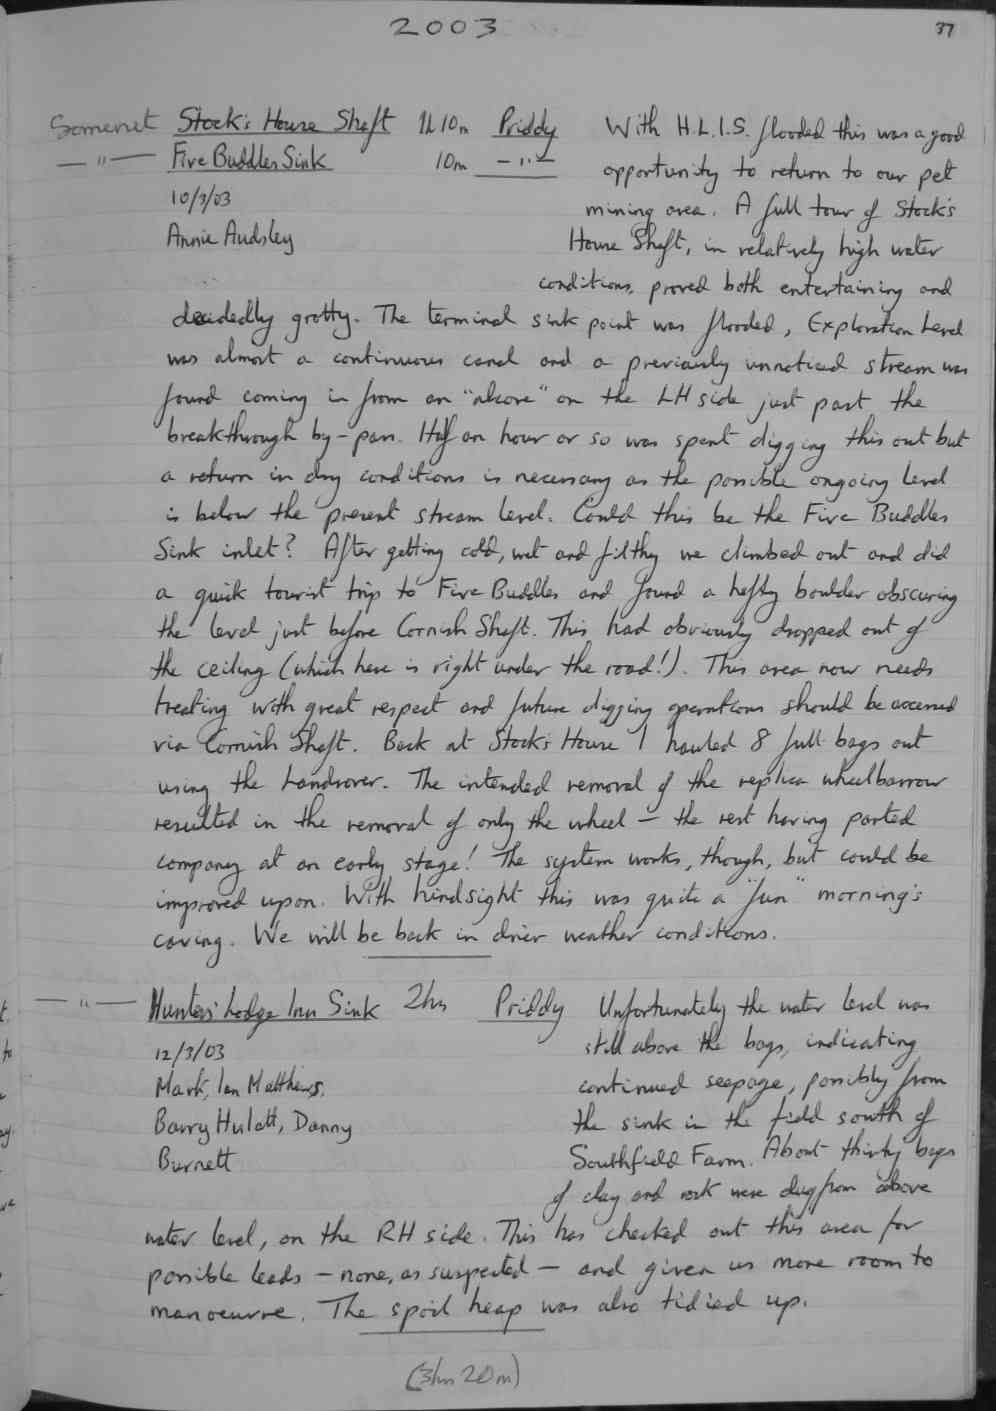 2003
37
Somerset Stock's House Shaft 1h 10m Priddy With H.L.I.S. flooded this was a good
— " — Five Buddles Sink 10m — " — opportunity to return to our pet
10/3/03 mining area. A full tour of Stock's
Annie Audsley House Shaft, in relatively high water
conditions, proved both entertaining and
decidedly grotty. The terminal sink point was flooded, Exploration Level
was almost a continuous canal and a previously unnoticed stream was
found coming in from an "alcove" on the LH side just past the
breakthrough by-pass. Half an hour or so was spent digging this out but
a return in dry conditions is necessary as the possible ongoing level
is below the present stream level. Could this be the Five Buddles
Sink inlet? After getting cold, wet and filthy we climbed out and did
a quick tourist trip to Five Buddles and found a hefty boulder obscuring
the level just before Cornish Shaft. This had obviously dropped out of
the ceiling (which here is right under the road!). This area now needs
treating with great respect and future digging operations should be accessed
via Cornish Shaft. Back at Stock's House I hauled 8 full bags out
using the Landrover. The intended removal of the replica wheelbarrow
resulted in the removal of only the wheel — the rest having parted
company at an early stage! The system works, though, but could be
improved upon. With hindsight this was quite a "fun" morning's
caving. We will be back in drier weather conditions.
— " — Hunters' Lodge Inn Sink 2hrs Priddy Unfortunately the water level was
12/3/03 still above the bags, indicating
Mark, Ian Matthews, continued seepage, possibly from
Barry Hulatt, Danny the sink in the field south of
Burnett Southfield Farm. About thirty bags
of clay and rock were dug from above
water level, on the RH side. This has checked out this area for
possible leads — none, as suspected — and given us more room to
manoeuvre. The spoil heap was also tidied up.
(3hrs 20m)